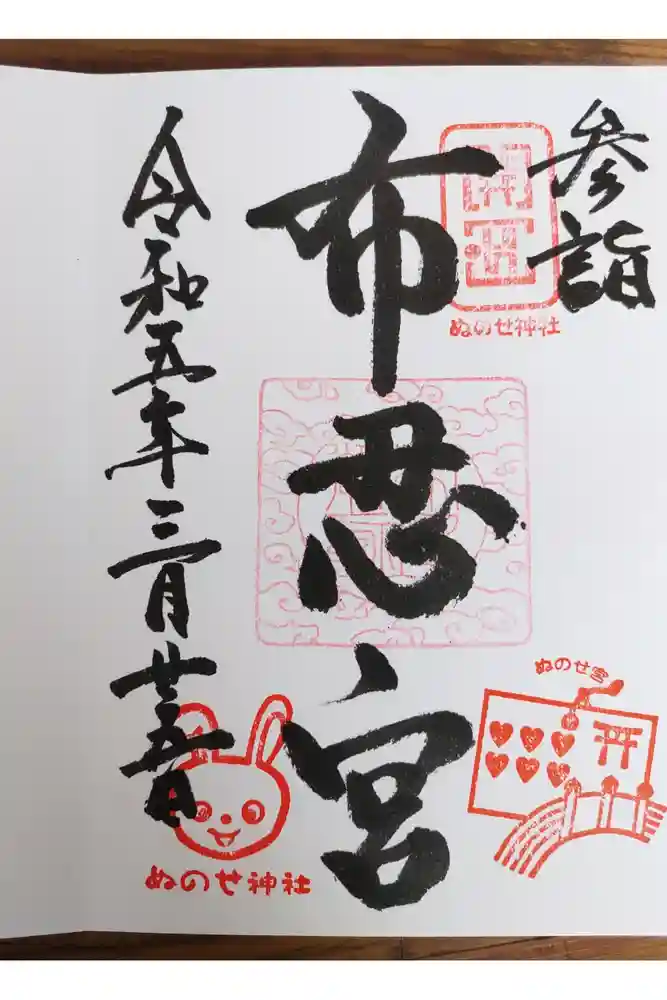 参詣
ぬのせ神社
布忍宮
ぬのせ宮
令和五年三月廿五日
ぬのせ神社